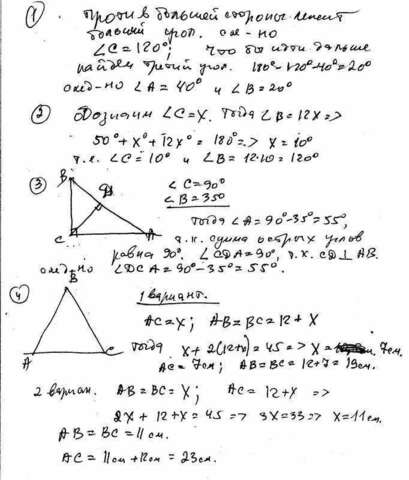 ① Против большей стороны лежит
больший угол. след-но
∠C = 120°; что бы идти дальше
найдем третий угол. 180°-120°-40°=20°
след-но ∠A = 40° и ∠B = 20°
② Обозначим ∠C = x. Тогда ∠B = 12x =>
50° + x° + 12x° = 180° => x = 10°
т.е. ∠C = 10° и ∠B = 12·10 = 120°
③ B
D
C
A
∠C = 90°
∠B = 35°
Тогда ∠A = 90°-35° = 55°,
т.к. сумма острых углов
равна 90°. ∠CDA = 90°, т.к. CD⊥AB.
след-но ∠DCA = 90°-35° = 55°.
④ B
A
C
1 вариант.
AC = x; AB = BC = 12 + x
Тогда x + 2(12+x) = 45 => x = 7см.
AC = 7см; AB = BC = 12+7 = 19см.
2 вариан. AB = BC = x; AC = 12 + x =>
2x + 12 + x = 45 => 3x = 33 => x = 11см.
AB = BC = 11см.
AC = 11см + 12см = 23см.